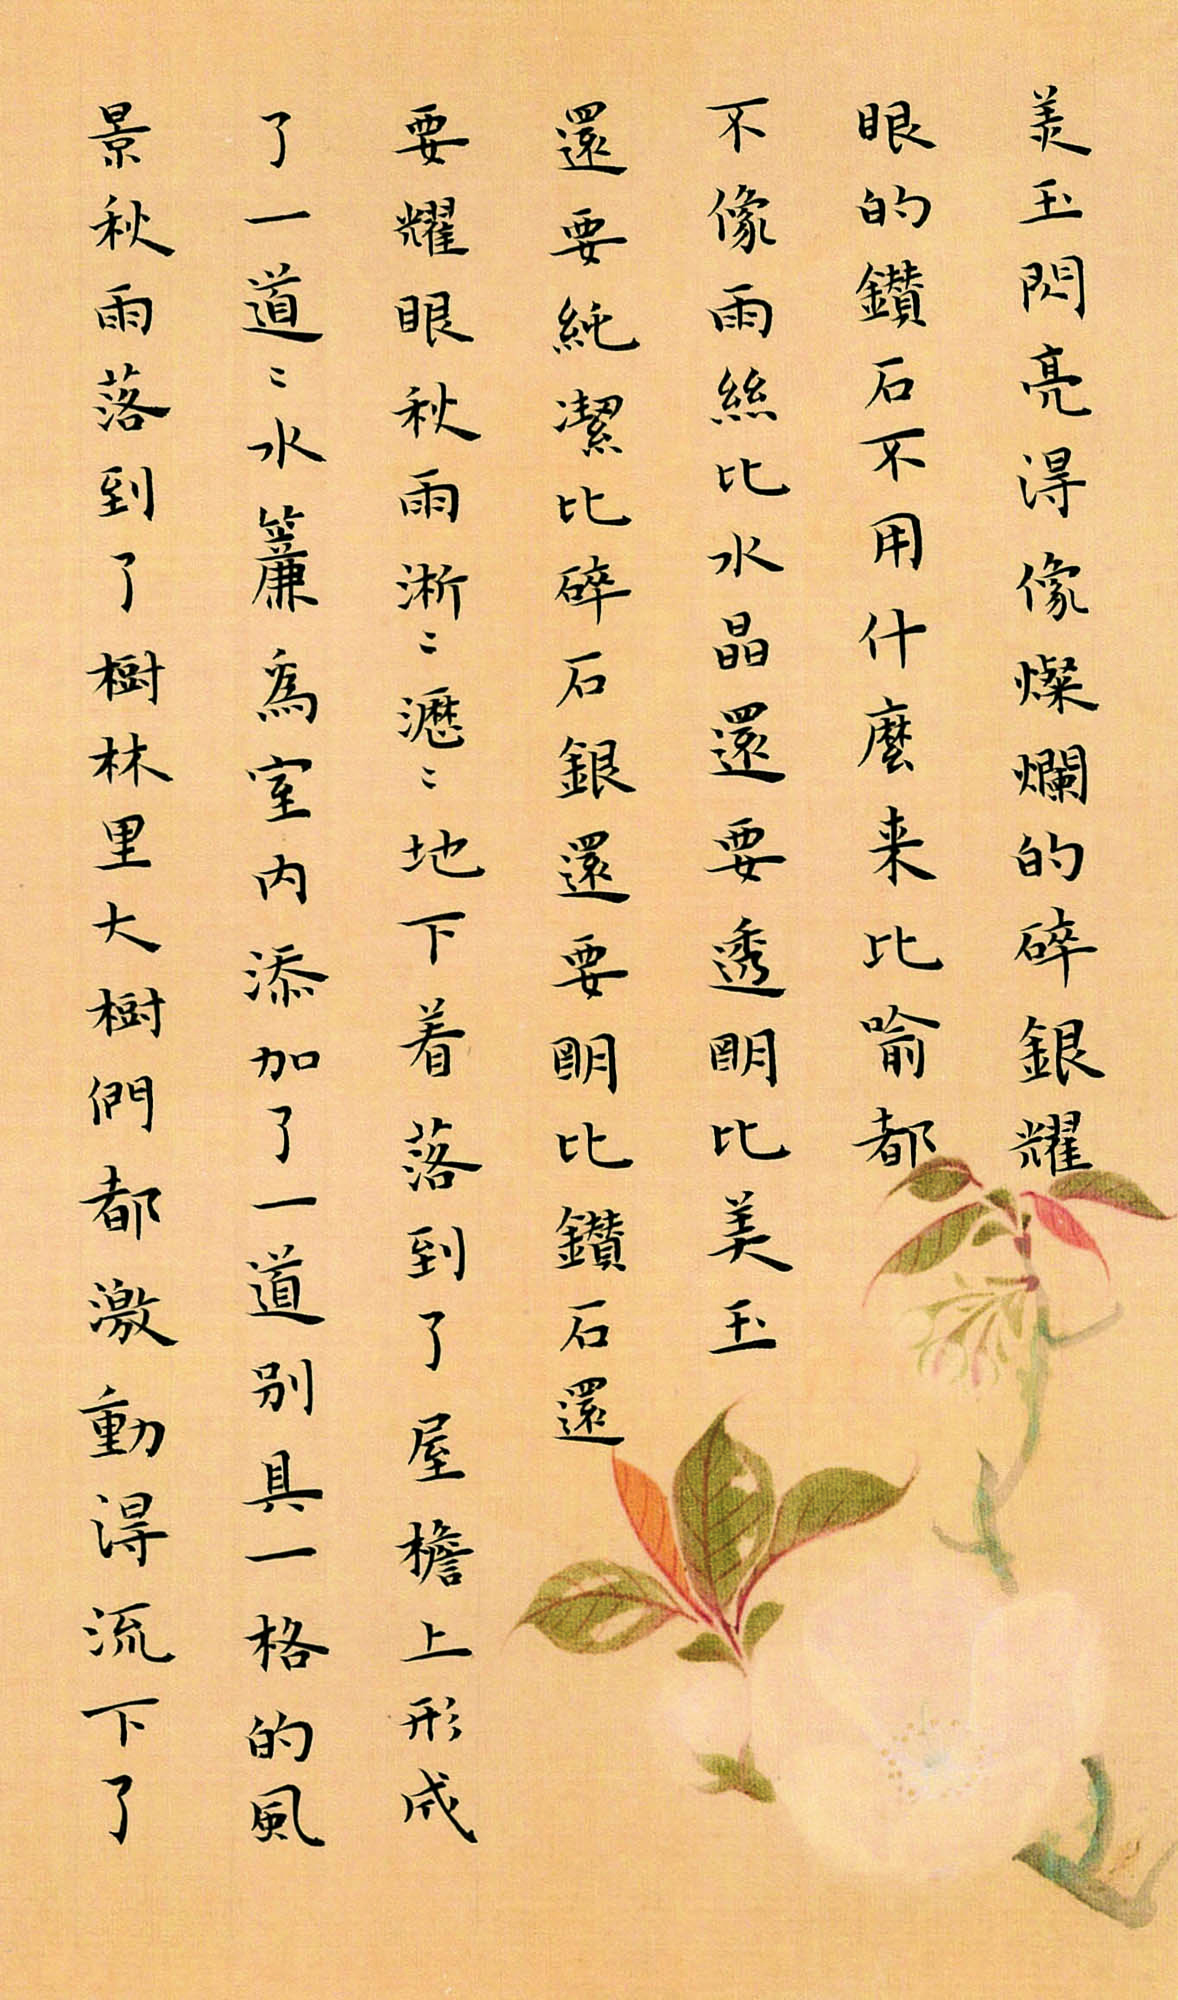 美玉閃亮得像燦爛的碎銀耀
眼的鑽石不用什麼来比喻都
不像雨絲比水晶還要透明比美玉
還要純潔比碎石銀還要明比鑽石還
要耀眼秋雨淅〻瀝〻地下着落到了屋檐上形成
了一道〻水簾為室内添加了一道别具一格的風
景秋雨落到了樹林里大樹們都激動得流下了